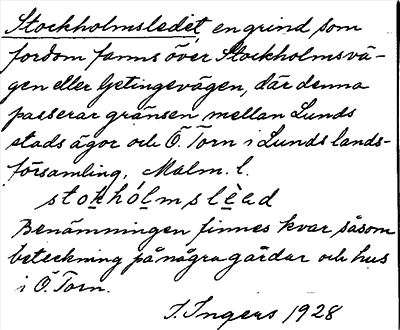 Stockholmsledet en grind som
fordom fanns över Stockholmsvä-
gen eller Getingevägen, där denna
passerar gränsen mellan Lunds
stads ägor och Ö. Torn i Lunds lands-
församling, Malm. l.
stokhólmslèad
Benämningen finnes kvar såsom
beteckning på några gårdar och hus
i Ö. Torn.
I. Ingers 1928